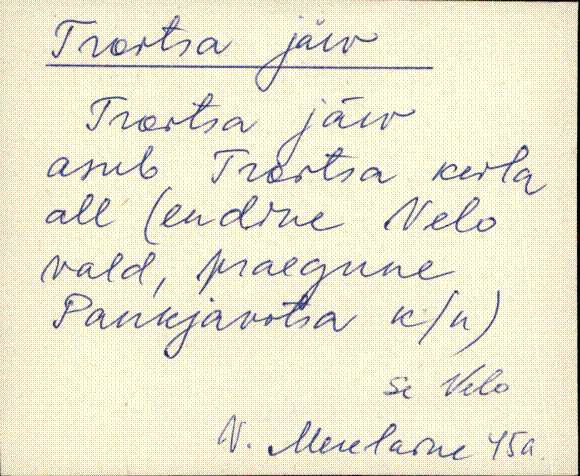 Troitsa järv
Troitsa järv
asub Troitsa keila
all (endine Velo
vald, praegune
Pankjavitsa k/n)
se Velo
N. Merelaine 45a.